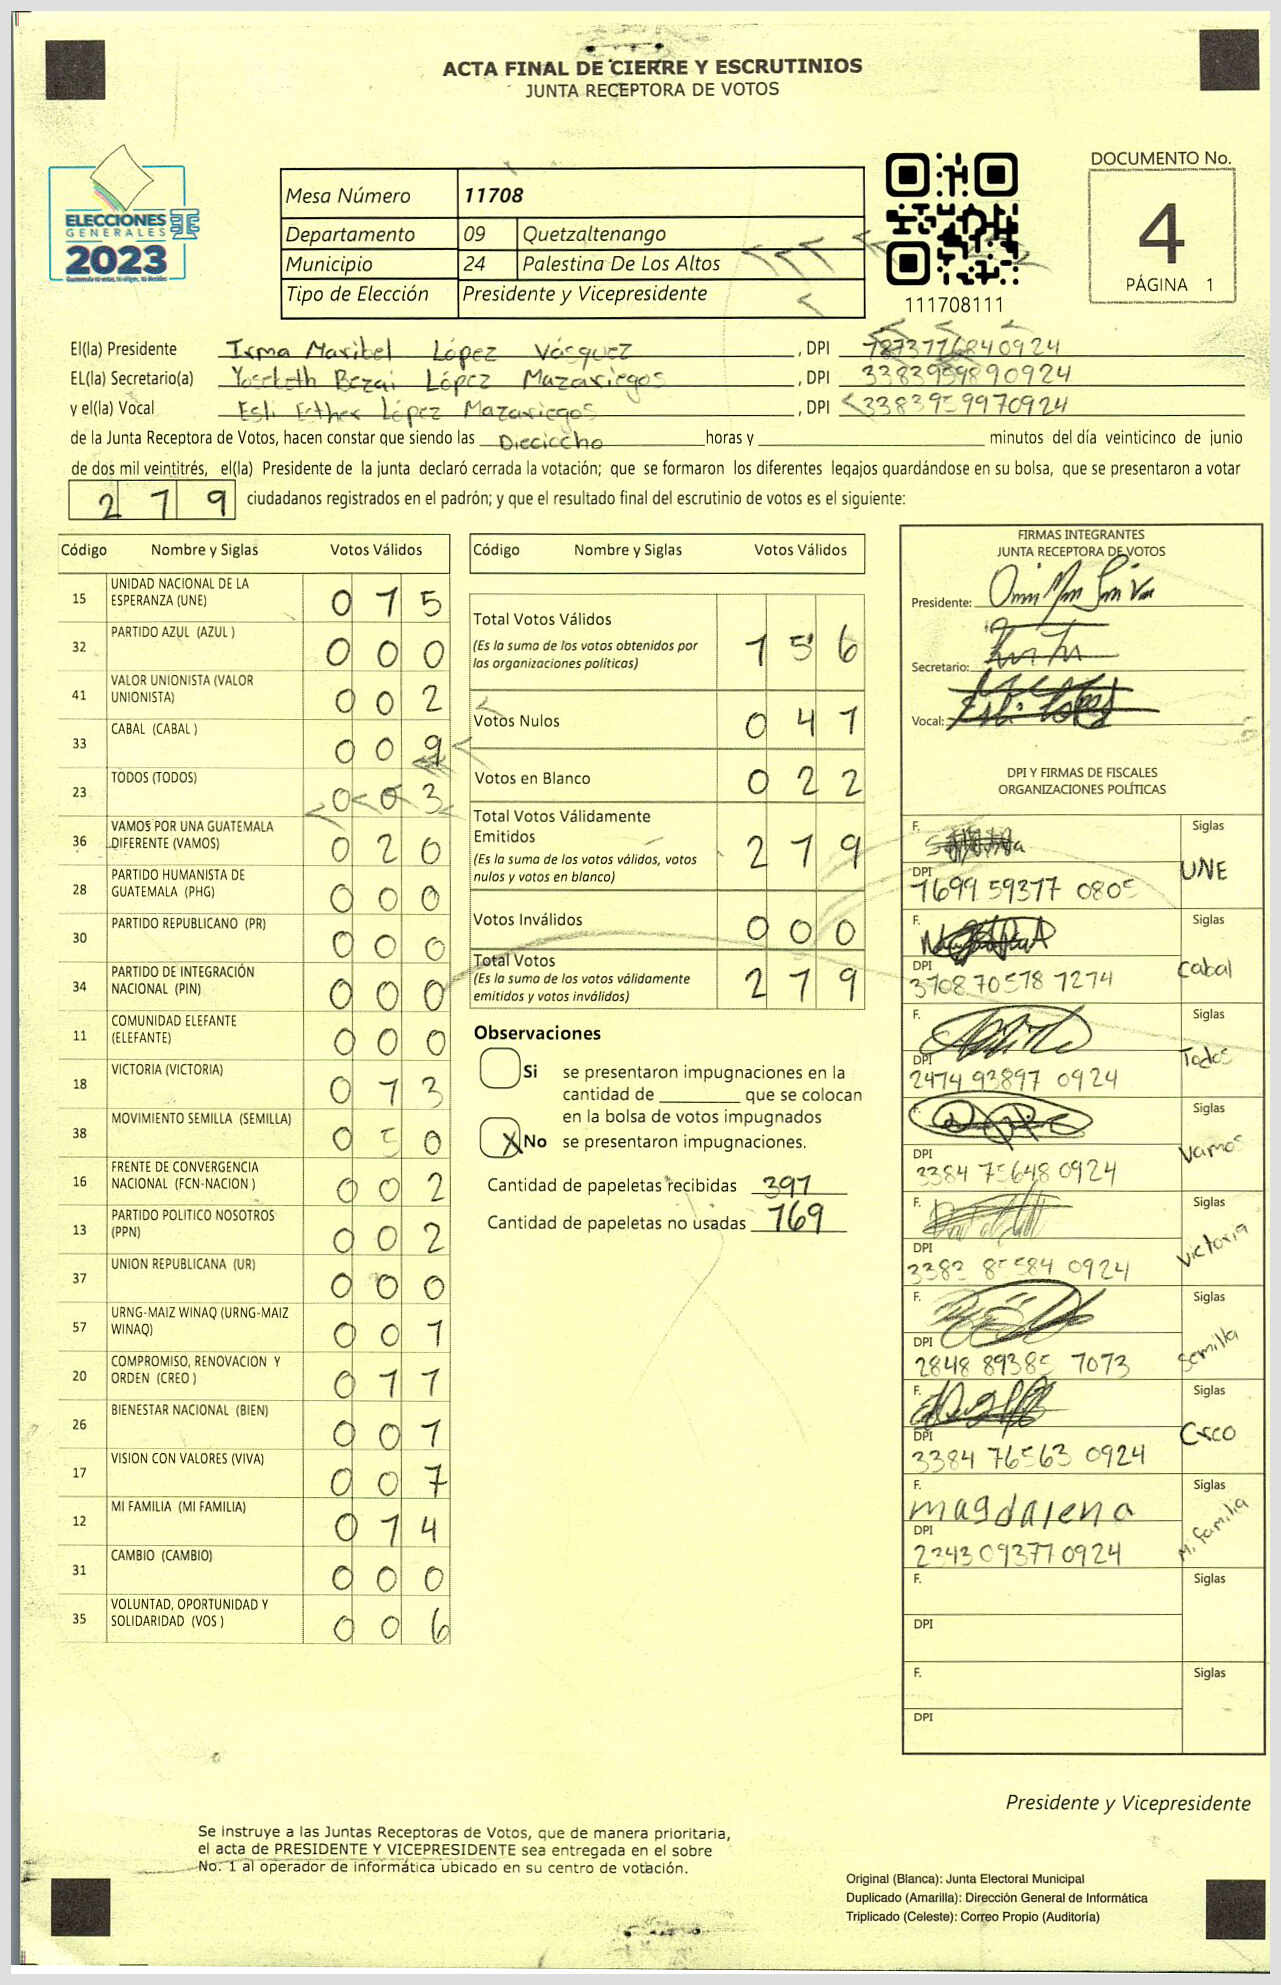 ACTA FINAL DE CIERRE Y ESCRUTINIOS
JUNTA RECEPTORA DE VOTOS
ELECCIONES
GENERALES
2023
Mesa Número 11708
Departamento 09 Quetzaltenango
Municipio 24 Palestina De Los Altos
Tipo de Elección Presidente y Vicepresidente
111708111
DOCUMENTO No.
4
PÁGINA 1
El(la) Presidente Irma Maribel López Vásquez, DPI
EL(la) Secretario(a) López Mazariegos, DPI 3383959890924
y el(la) Vocal Esli Esther López Mazariegos, DPI 3383959970924
de la Junta Receptora de Votos, hacen constar que siendo las Dieciocho horas y minutos del día veinticinco de junio
de dos mil veintitrés, el(la) Presidente de la junta declaró cerrada la votación; que se formaron los diferentes legajos guardándose en su bolsa, que se presentaron a votar
2 7 9 ciudadanos registrados en el padrón; y que el resultado final del escrutinio de votos es el siguiente:
Código Nombre y Siglas Votos Válidos
15 UNIDAD NACIONAL DE LA ESPERANZA (UNE) 0 1 5
32 PARTIDO AZUL (AZUL ) 0 0 0
41 VALOR UNIONISTA (VALOR UNIONISTA) 0 0 2
33 CABAL (CABAL ) 0 0 9
23 TODOS (TODOS) 0 0 3
36 VAMOS POR UNA GUATEMALA DIFERENTE (VAMOS) 0 2 0
28 PARTIDO HUMANISTA DE GUATEMALA (PHG) 0 0 0
30 PARTIDO REPUBLICANO (PR) 0 0 0
34 PARTIDO DE INTEGRACIÓN NACIONAL (PIN) 0 0 0
11 COMUNIDAD ELEFANTE (ELEFANTE) 0 0 0
18 VICTORIA (VICTORIA) 0 1 3
38 MOVIMIENTO SEMILLA (SEMILLA) 0 5 0
16 FRENTE DE CONVERGENCIA NACIONAL (FCN-NACION ) 0 0 2
13 PARTIDO POLITICO NOSOTROS (PPN) 0 0 2
37 UNION REPUBLICANA (UR) 0 0 0
57 URNG-MAIZ WINAQ (URNG-MAIZ WINAQ) 0 0 1
20 COMPROMISO, RENOVACION Y ORDEN (CREO ) 0 1 1
26 BIENESTAR NACIONAL (BIEN) 0 0 1
17 VISION CON VALORES (VIVA) 0 0 7
12 MI FAMILIA (MI FAMILIA) 0 1 4
31 CAMBIO (CAMBIO) 0 0 0
35 VOLUNTAD, OPORTUNIDAD Y SOLIDARIDAD (VOS ) 0 0 6
Código Nombre y Siglas Votos Válidos
Total Votos Válidos 1 5 6
(Es la suma de los votos obtenidos por
las organizaciones políticas)
Votos Nulos 0 4 1
Votos en Blanco 0 2 2
Total Votos Válidamente
Emitidos 2 1 9
(Es la suma de los votos válidos, votos
nulos y votos en blanco)
Votos Inválidos 0 0 0
Total Votos 2 1 9
(Es la suma de los votos válidamente
emitidos y votos inválidos)
Observaciones
Si se presentaron impugnaciones en la
cantidad de ________ que se colocan
en la bolsa de votos impugnados
X No se presentaron impugnaciones.
Cantidad de papeletas recibidas 391
Cantidad de papeletas no usadas 169
FIRMAS INTEGRANTES
JUNTA RECEPTORA DE VOTOS
Presidente:
Secretario:
Vocal:
DPI Y FIRMAS DE FISCALES
ORGANIZACIONES POLÍTICAS
F. Siglas UNE
DPI 1699 59377 0805
F. Siglas Cabal
DPI 3108 70578 1214
F. Siglas Todos
DPI 2474 93897 0924
F. Siglas Vamos
DPI 3384 75648 0924
F. Siglas Victoria
DPI 0924
F. Siglas Semilla
DPI 2848 89385 1013
F. Siglas Creo
DPI 3384 76563 0924
F. magdalena Siglas Mi familia
DPI 2343 09377 0924
F. Siglas
DPI
F. Siglas
DPI
Presidente y Vicepresidente
Se instruye a las Juntas Receptoras de Votos, que de manera prioritaria,
el acta de PRESIDENTE Y VICEPRESIDENTE sea entregada en el sobre
No. 1 al operador de informática ubicado en su centro de votación.
Original (Blanca): Junta Electoral Municipal
Duplicado (Amarilla): Dirección General de Informática
Triplicado (Celeste): Correo Propio (Auditoría)